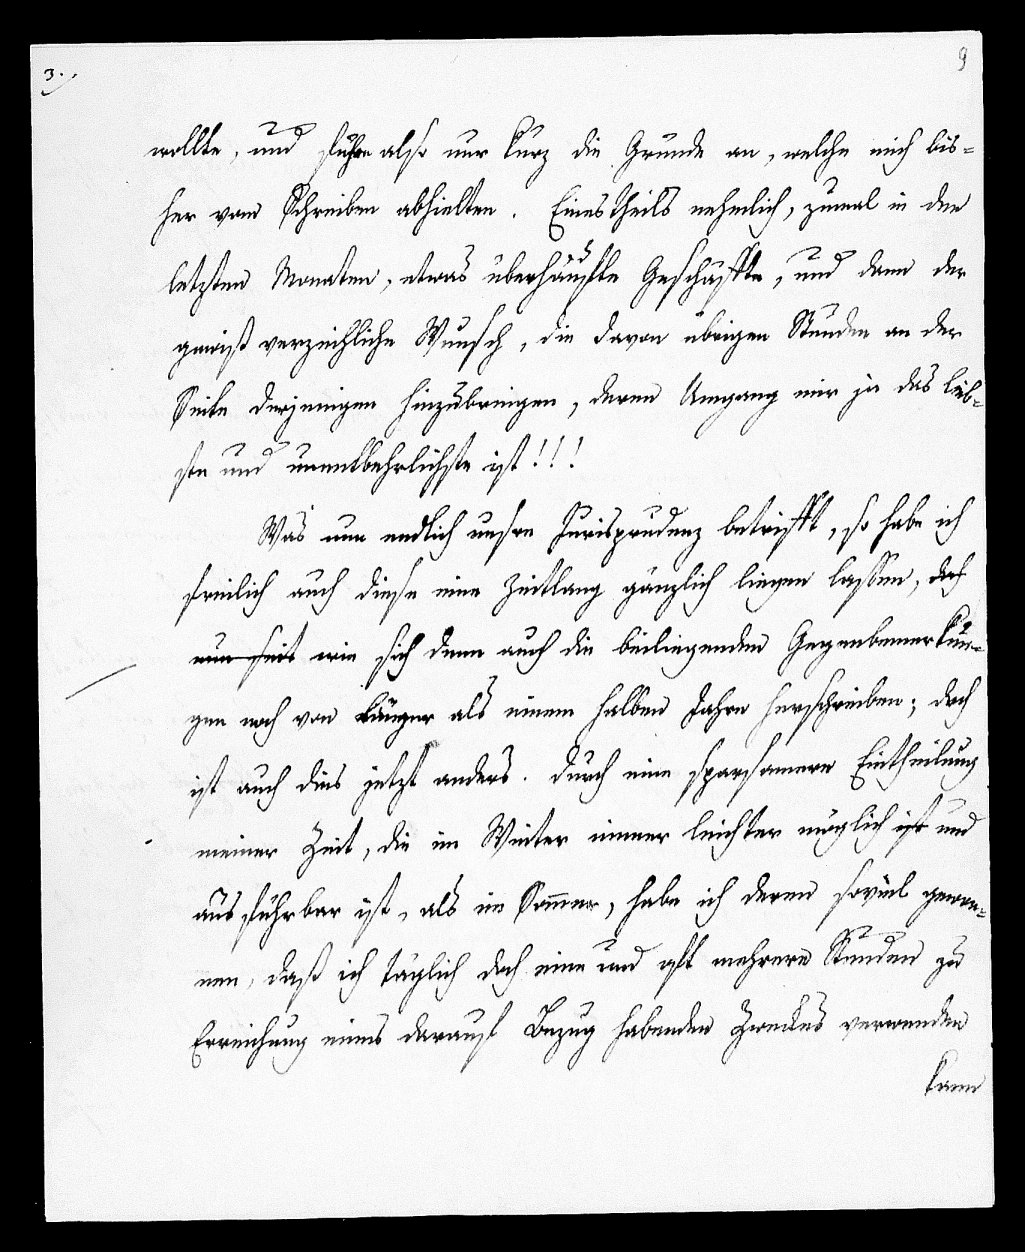 3.
9
wollte, und führe also nur kurz die Gründe an, welche mich bis=
her vom Schreiben abhielten. Einestheils nehmlich, zumal in den
letzten Monaten, etwas überhäufte Geschäfte, und dann der
gewiß verzeihliche Wunsch, die davon übrigen Stunden an der
Seite derjenigen hinzubringen, deren Umgang mir ja das lieb=
ste und unentbehrlichste ist!!!
Was nun endlich unsre Jurisprudenz betrifft, so habe ich
freilich auch diese eine Zeitlang gänzlich liegen lassen, doch
nun seit wie sich denn auch die beiliegenden Gegenbemerkun=
gen noch von länger als einem halben Jahre herschreiben; doch
ist auch dies jetzt anders. Durch eine sparsamere Eintheilung
meiner Zeit, die im Winter immer leichter möglich ist und
ausführbar ist, als im Som̅er, habe ich deren soviel gewon=
nen, daß ich täglich doch eine und oft mehrere Stunden zu
Erreichung eines darauf Bezug habenden Zweckes verwenden
kann